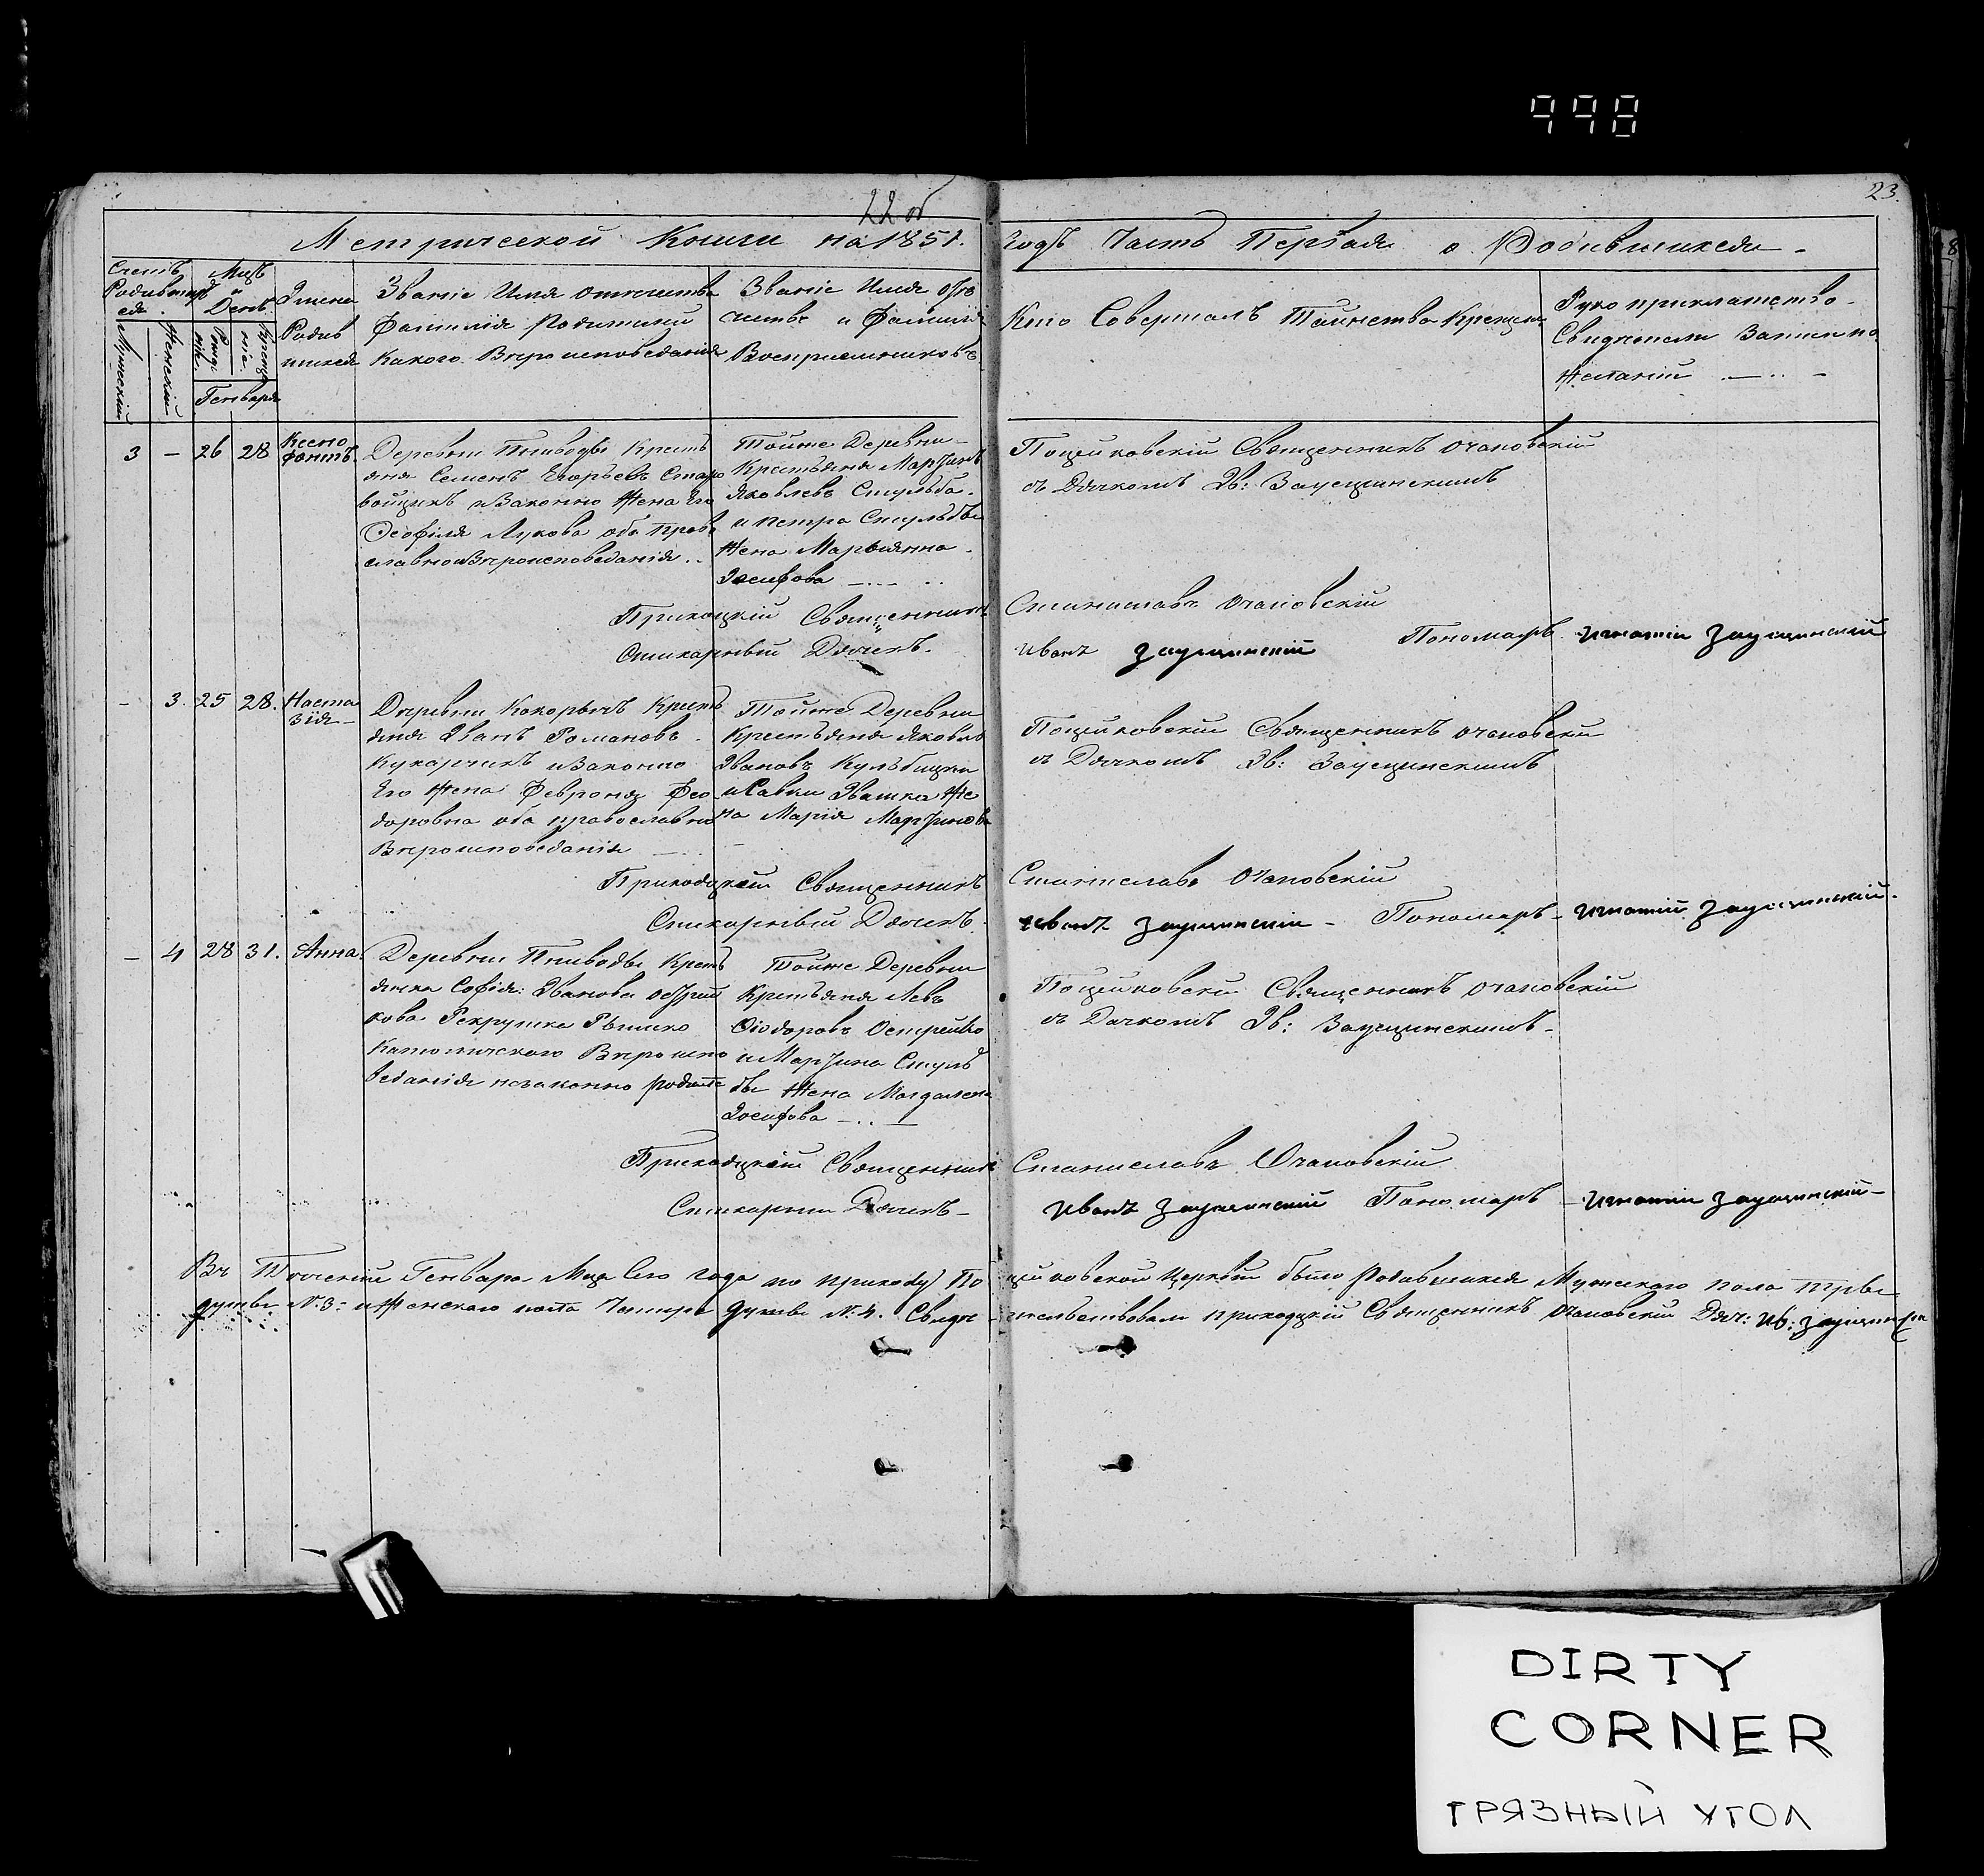 998
22 об
23.
Метрической Книги на 1851. Годъ Часть Первая о Родившихся
Счетъ Родившихся.
Мужескій
Женскій
Мцъ и День
Рожденія
Крещенія
Генваря
Имена Родившихся
Званіе Имя отчества
Фамилія Родителей
Какого Вѣроисповеданія
Званіе Имя отечество и Фамилія
Восприемниковъ
Кто Совершалъ Таинство Крещенія
Рукоприкладство
Свидѣтели Записи по
Желаній
3 - 26 28 Ксенофонтъ
Деревни Пниводы Кресть
яня Семенъ Егорьевъ
и Законно Жена Его
Феофіля Лукова оба право
славно Вѣроисповеданія
Тойже Деревни
Крестьяня Мартинъ
Яковлевъ Стульба
и Петра Стульбы
Жена Марьянна
Іосифова
Поцейковскій Священникъ Очаповскій
съ Дячкомъ Ив: Заусцинскимъ
Приходцкій Священникъ Станиславъ Очаповскій
Стихарный Дячекъ. Иванъ Заусцинскій Пономаръ Игнатій Заусцинскій
- 3. 25 28. Настазія
Деревни Кокорычъ Кресть
яня Иванъ Романовъ
Кухарчикъ и Законно
Его Жена Февроня Фео
доровна оба православно
Вѣроисповеданія
Тойже Деревни
Крестьяня Яковъ
Ивановъ Кульбицки
и Савки Ивашка Же
на Марія Мартинова
Поцейковскій Священникъ Очаповскій
съ Дячкомъ Ив: Заусцинскимъ
Приходцкій Священникъ Станиславъ Очаповскій
Стихарный Дячекъ. Иванъ Заусцинскій - Пономаръ - Игнатій Заусцинскій.
- 4 28 31. Анна.
Деревни Пниводы Кресть
янка Софія: Иванова Острей
кова Рекрутка Римско
Католическаго Вѣроиспо
веданія незаконно
Тойже Деревни
Крестьяня Левъ
Фіодоровъ Острейко
и Мартина Стуль
бы Жена Магдалена
Іосифова
Поцейковскій Священникъ Очаповскій
съ Дячкомъ Ив: Заусцинскимъ
Приходцкій Священникъ Станиславъ Очаповскій
Стихарный Дячекъ - Иванъ Заусцинскій Пономаръ - Игнатій Заусцинскій -
Въ Теченіи Генваря Мца Сего года по приходу Поцейковской Церкви было Родившихся Мужеского пола три
душъ №. 3: и Женского пола Чатыре душъ №. 4. Свидѣтельствовали приходцкій Священникъ Очаповскій Дяч: Ив: Заусцинскій
DIRTY
CORNER
ГРЯЗНЫЙ УГОЛ